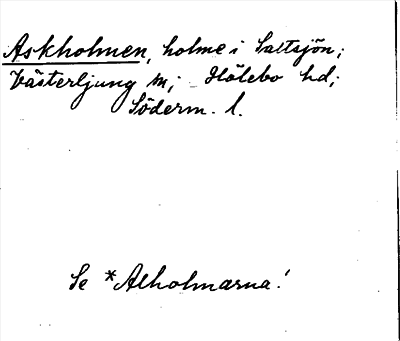 Askholmen, holme i Saltsjön;
Västerljung sn; Hölebo hd;
Söderm. l.
Se *Alholmarna!